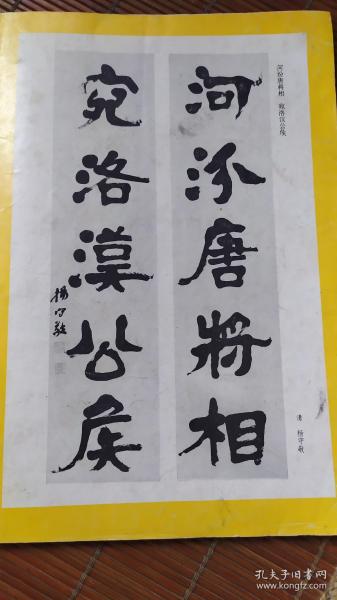 河汾唐将相 宛洛汉公侯
河汾唐將相
宛洛漢公矦
楊守敬
清 杨守敬
孔夫子旧书网
www.kongfz.com